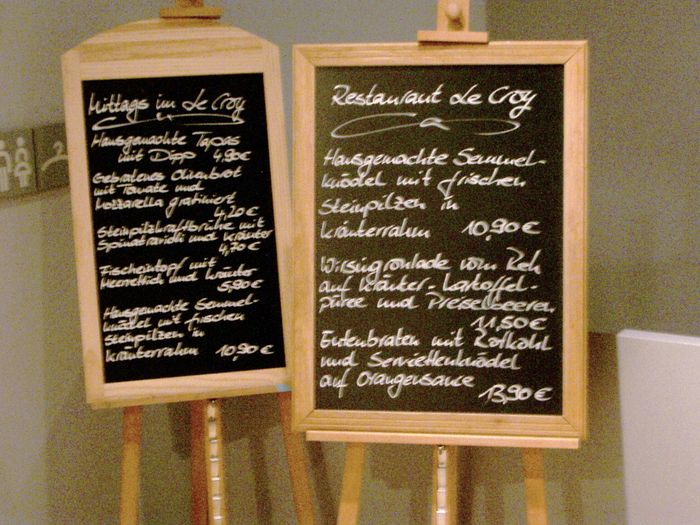 Mittags im Le Croy
Hausgemachte Tapas
mit Dipp 4,90€
Gebratenes Olivenbrot
mit Tomate und
Mozzarella gratiniert
4,20 €
Steinpilzkraftbrühe mit
Spinatravioli und Kräuter
4,70 €
Fischeintopf mit
Meerrettich und Kräuter
5,90€
Hausgemachte Semmel-
knödel mit frischen
Steinpilzen in
Kräuterrahm 10,90 €
Restaurant Le Croy
Hausgemachte Semmel-
knödel mit frischen
Steinpilzen in
Kräuterrahm 10,90 €
Wirsingroulade vom Reh
auf Kräuter-Kartoffel-
püree und Preiselbeeren
11,50 €
Entenbraten mit Rotkohl
und Serviettenknödel
auf Orangensauce
13,90 €